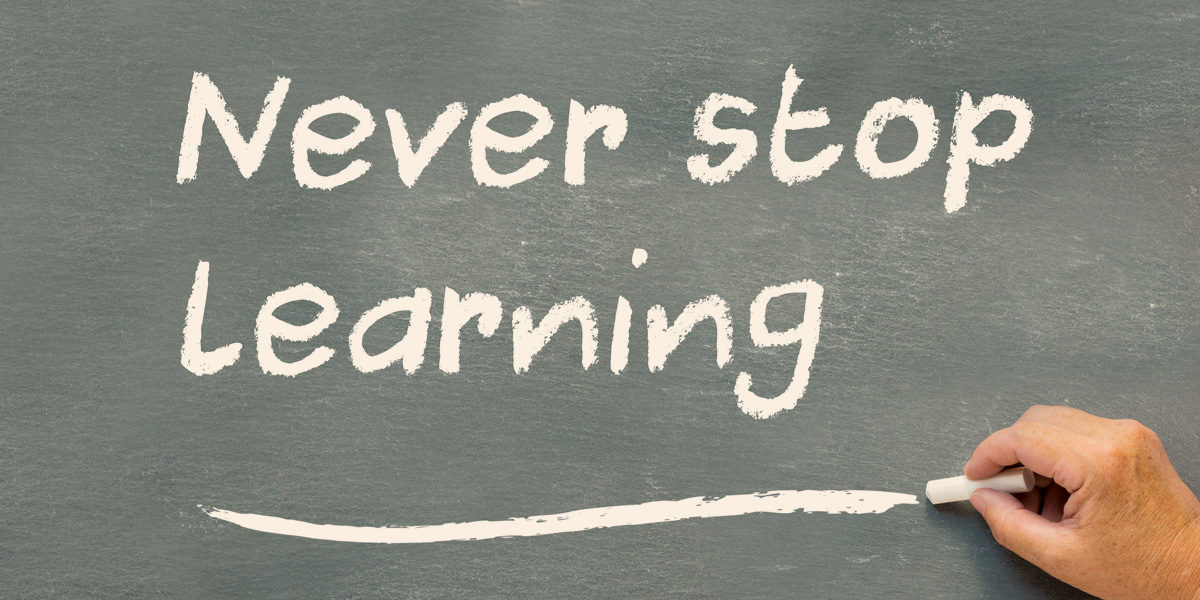 Never stop
Learning